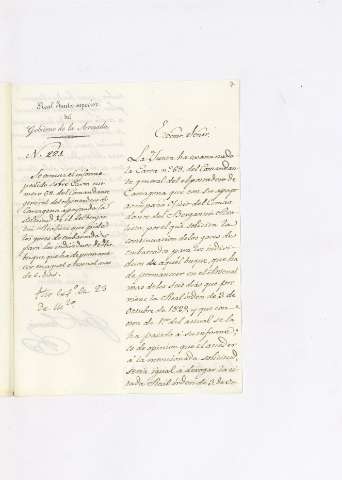 Real Junta superior
del
Gobierno de la Armada.
N. 221
Se evacua el informe
pedido sobre Carta nu-
mero 68. del Comandante
general del Apostadero de
Cartagena apoyando la
solicitud del
que pide
los goces de embarcado
para los individuos de
buque que ha de permane-
cer en aquel Arsenal mas
de 6 dias.
de 23
de
7.
Excmo. Señor.
La Junta ha examinado
la Carta nº 68. del Comandan-
te general del Apostadero de
Cartagena que con su apoyo
acompaña Oficio del Coman-
dante del Bergantin
por el que solicita la
continuacion de los goces de
embarcado para los indivi-
duos de aquel buque, que ha
de permanecer en el Arsenal
mas de los seis dias que por
mite la Real orden de 3. de
Octubre de 1829, y que con
con de 1º del actual se le
ha pasado a su informe;
es de opinion que el acceder
á la mencionada solicitud,
seria igual a derogar la ci-
tada Real orden de 3. de Oc-